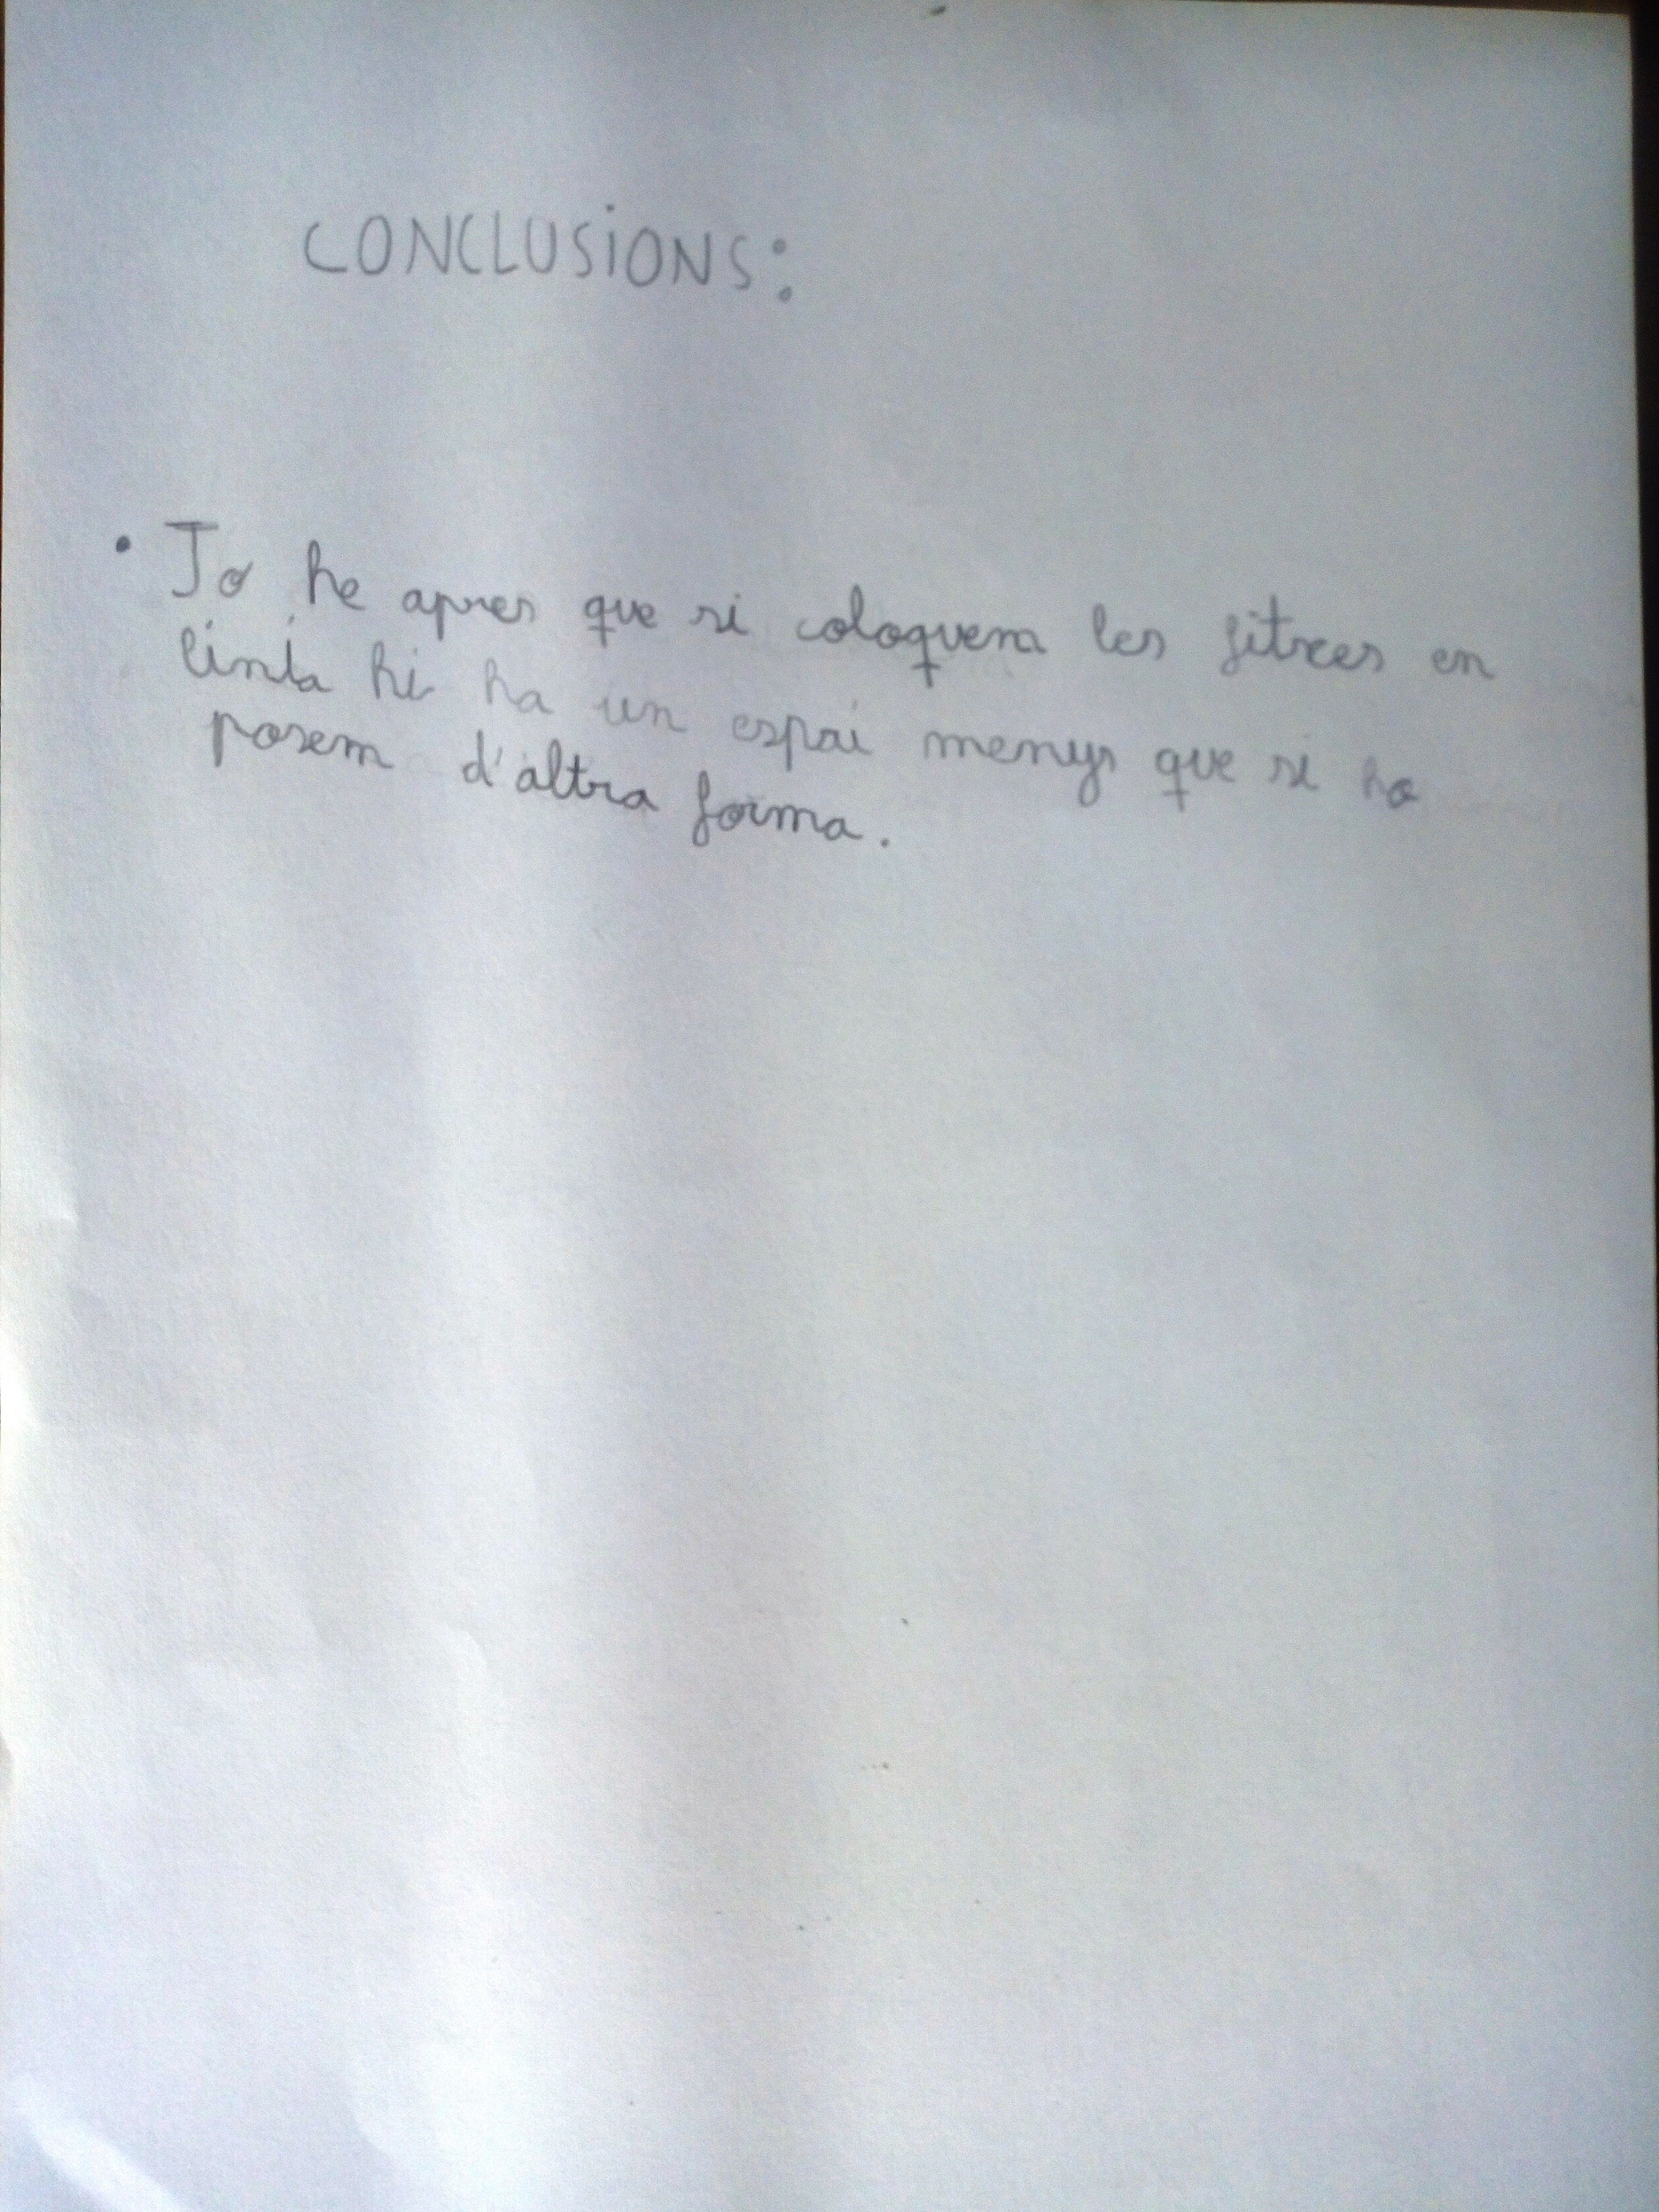 CONCLUSIONS:
• Jo he apres que si coloquem les fitxes en
línia hi ha un espai menys que si ho
posem d'altra forma.